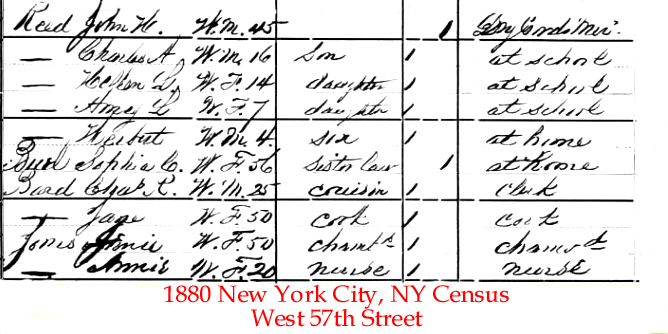 Read John H. W. M. 45 1 Dry Goods Mer.
— Charles A. W. M. 16 Son 1 at school
— Helen L. W. F. 14 daughter 1 at school
— Amey L W. F. 7 daughter 1 at school
— Herbert W. M. 4. son 1 at home
Sophia C. W. F. 56 Sister law 1 at home
Burd Chas. R. W. M. 25 cousin 1 Clerk
— Jane W. F. 50 cook 1 cook
Jones W. F. 50 chambd 1 chambd
— Annie W. F. 20 nurse 1 nurse
1880 New York City, NY Census
West 57th Street